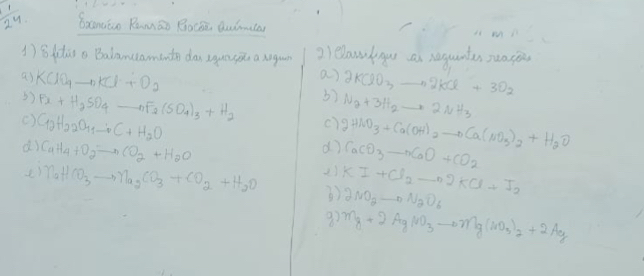 11
24.
Exercício Revisão Reações Químicas
1) Efetue o Balanceamento das equações a seguir
a) KClO4 → KCl + O2
b) Fe + H2SO4 → Fe2(SO4)3 + H2
c) C12H22O11 → C + H2O
d) C2H4 + O2 → CO2 + H2O
e) NaHCO3 → Na2CO3 + CO2 + H2O
" m "
2) Classifique as seguintes reações
a) 2KClO3 → 2KCl + 3O2
b) N2 + 3H2 → 2NH3
c) 2HNO3 + Ca(OH)2 → Ca(NO3)2 + H2O
d) CaCO3 → CaO + CO2
e) KI + Cl2 → 2KCl + I2
f) 2NO2 → N2O4
g) Mg + 2AgNO3 → Mg(NO3)2 + 2Ag